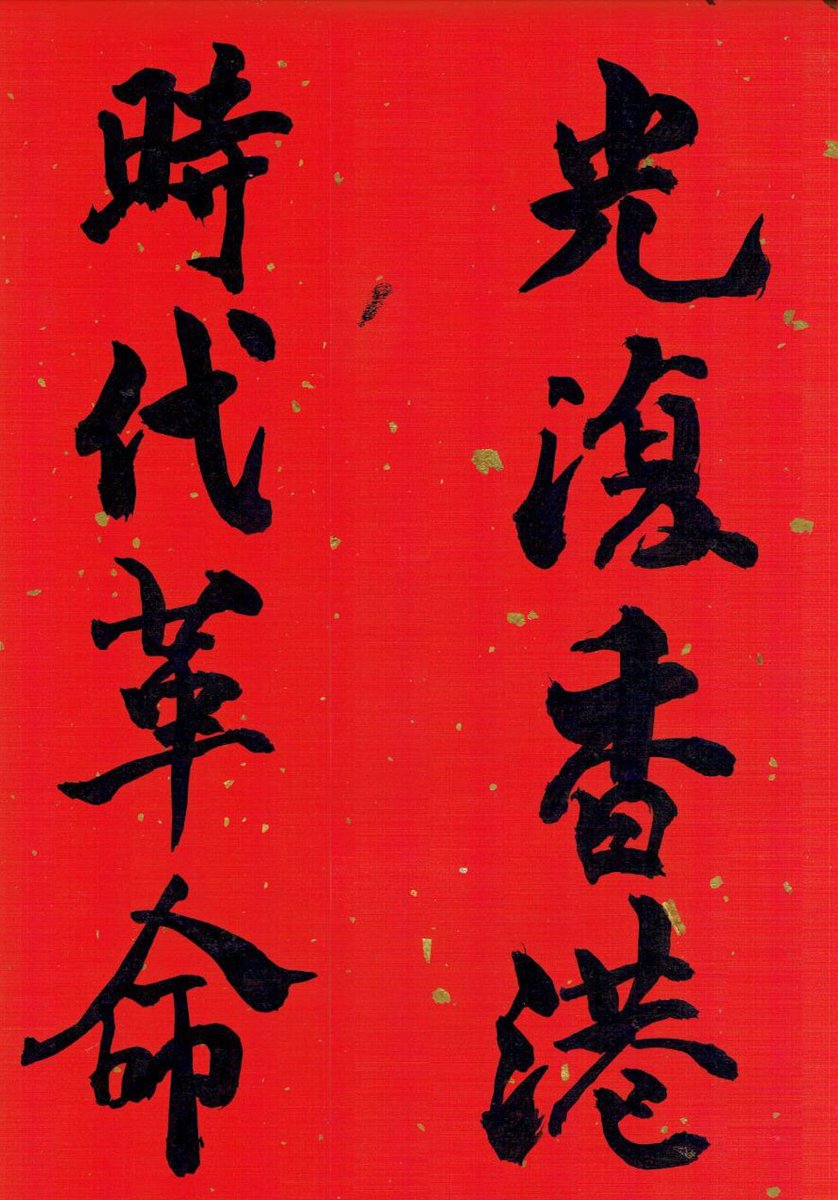 光復香港
時代革命